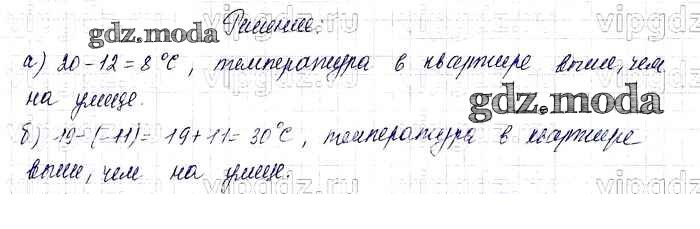 Решение:
а) 20-12=8°C, температура в квартире выше, чем
на улице.
б) 19-(-11)= 19+11=30°C, температура в квартире
выше, чем на улице.
gdz.moda
gdz.moda
vipgdz.ru
vipgdz.ru